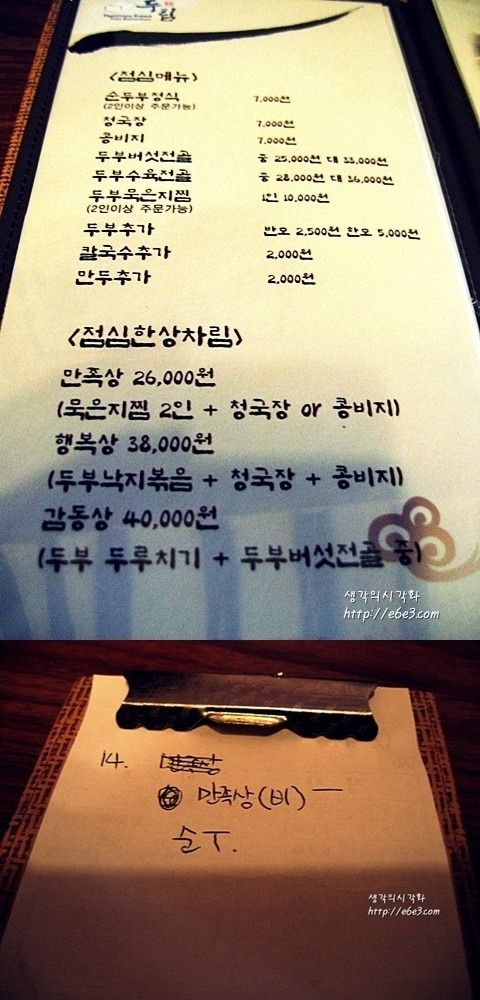 두림
<점심메뉴>
순두부정식 7,000원
(2인이상 주문가능)
청국장 7,000원
콩비지 7,000원
두부버섯전골 중 25,000원 대 33,000원
두부수육전골 중 28,000원 대 36,000원
두부묵은지찜 1인 10,000원
(2인이상 주문가능)
두부추가 반모 2,500원 한모 5,000원
칼국수추가 2,000원
만두추가 2,000원
<점심한상차림>
만족상 26,000원
(묵은지찜 2인 + 청국장 or 콩비지)
행복상 38,000원
(두부낙지볶음 + 청국장 + 콩비지)
감동상 40,000원
(두부 두루치기 + 두부버섯전골 중)
생각의시각화
http://e6e3.com
14.
만족상(비) ㅡ
순T.
생각의시각화
http://e6e3.com